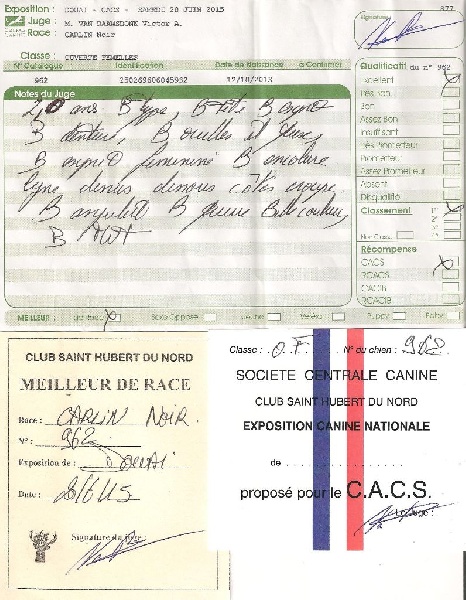 Exposition : DOUAI - CACS - SAMEDI 28 JUIN 2015
Juge : M. VAN DAMSHSNK Victor A.
Race : CARLIN Noir
877
Signature
Classe : OUVERTE FEMELLES
N° Catalogue Identification Date de Naissance à Confirmer
962 250269606045962 12/10/2013
Qualificatif du n° 962
Excellent
Très Bon
Bon
Assez Bon
Insuffisant
Très Prometteur
Prometteur
Assez Prometteur
Absent
Disqualifié
Classement
Non Classé
Récompense
CACS
RCACS
CACIB
RCACIB
Notes du Juge
2,0 ans B type, B tête B
B denture, B oreilles et yeux,
B féminine B encolure
ligne dessus dessous côtes croupe
B angulé B queue Belle couleur
B
MEILLEUR : de Race Sexe Opposé Jeune Vétéran Puppy Bébé
CLUB SAINT HUBERT DU NORD
MEILLEUR DE RACE
Race : CARLIN NOIR.
N° : 962
Exposition de : Douai
Date : 28/6/15
Signature du Juge :
Classe : O.F. N° du chien : 962
SOCIETE CENTRALE CANINE
CLUB SAINT HUBERT DU NORD
EXPOSITION CANINE NATIONALE
de
proposé pour le C.A.C.S.